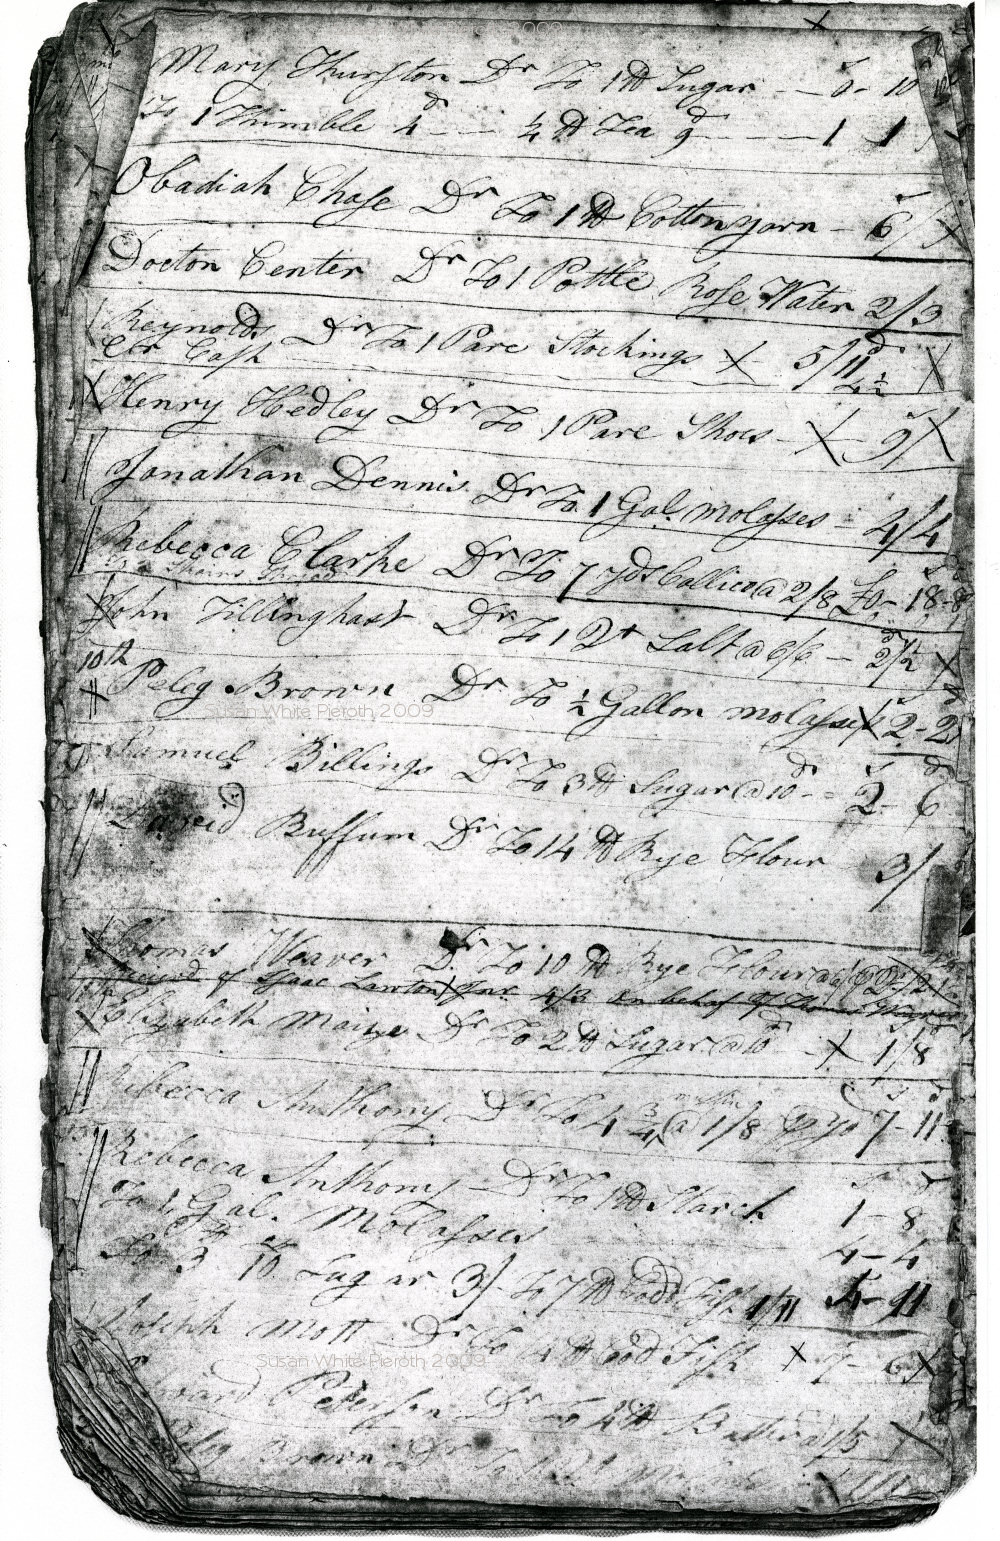 Mary Thurston Dr To 1 lb Sugar - - 0 - 10
To 1 Thimble 4d - - 1/4 lb Tea 9d - - - 1 1
Obadiah Chase Dr To 1 lb Cotton yarn - 6/
Docton Center Dr To 1 Bottle Rose Water 2/3
Reynolds Dr To 1 Pare Stockings X 5/11 X
Cr Cash 4 1/2
Henry Hedley Dr To 1 Pare Shoes - X 9/ X
Jonathan Dennis Dr To 1 Gal. molasses - 4/4
Rebecca Clarke Dr To 7 yds Callico @ 2/8 £0 - 18 - 8
John Tillinghast Dr To 1 Salt @ - 2/2 X
10th
Peleg Brown Dr To 1/2 Gallon molasses X 2 - 2
Samuel Billings Dr To 3 lb Sugar @ 10d - - 2 - 6
David Buffum Dr To 14 lb Rye Flour 3/
Thomas Weaver Dr To 10 lb Rye Flour
Recevd of Isaac Lawton 4/3 on behalf of
Elizabeth Maize Dr To 2 lb Sugar @ 10d - X 1/8
Rebecca Anthony Dr To 4 3/4 @ 1/8 yd 7 - 11
Rebecca Anthony Dr To 1 lb Starch 1 - 8
To 1 Gal. Molasses 4 - 4
To 3 lb 10 oz Sugar 3/ To 7 lb Codd Fish 1/11 4 - 11
Joseph Mott Dr To 14 lb Cod Fish X X
Edward Peterson Dr To 4 lb Butter
Peleg Brown Dr To
Susan White Pieroth 2009
Susan White Pieroth 2009